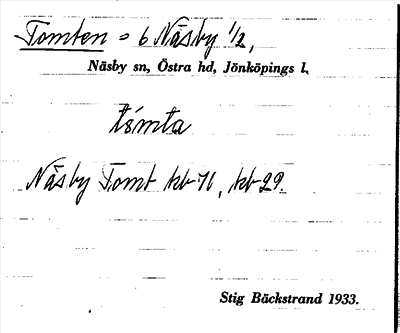 Tomten = 6 Näsby 1/2,
Näsby sn, Östra hd, Jönköpings l.
tómta
Näsby Tomt kb 71, kb 29.
Stig Bäckstrand 1933.